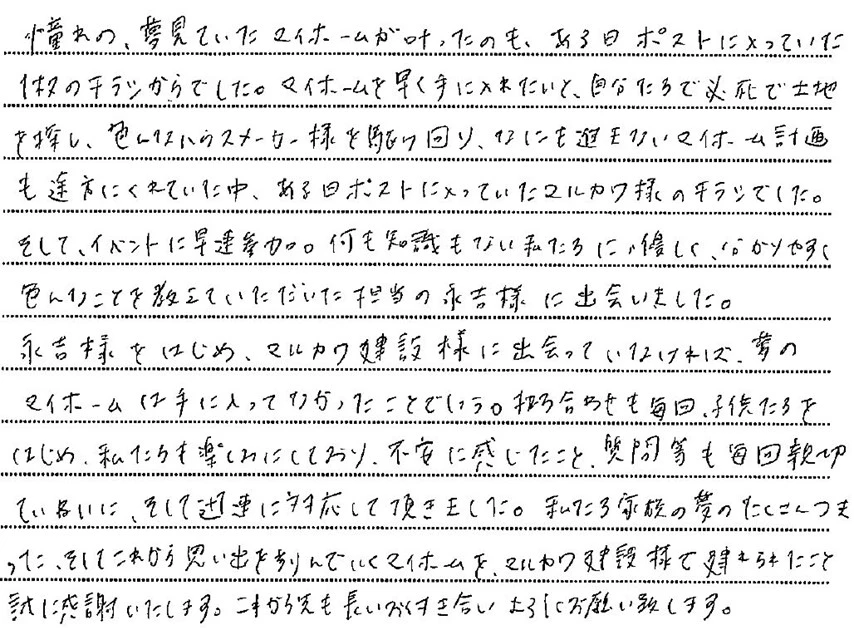 憧れの、夢見ていたマイホームが叶ったのも、ある日ポストに入っていた
1枚のチラシからでした。マイホームを早く手に入れたいと、自分たちで必死で土地
を探し、色んなハウスメーカー様を駆け回り、なにも進まないマイホーム計画
も途方にくれていた中、ある日ポストに入っていたマルカワ様のチラシでした。
そして、イベントに早速参加。何も知識もない私たちに、優しく、分かりやすく
色んなことを教えていただいた担当の永吉様に出会いました。
永吉様をはじめ、マルカワ建設様に出会っていなければ、夢の
マイホームは手に入ってなかったことでしょう。打ち合わせも毎回、子供たちを
はじめ、私たちも楽しみにしており、不安に感じたこと、質問等も毎回親切
ていねいに、そして迅速に対応して頂きました。私たち家族の夢のたくさんつま
った、そしてこれから思い出を刻んでいくマイホームを、マルカワ建設様で建てられたこと
誠に感謝いたします。これから先も長いお付き合いよろしくお願い致します。